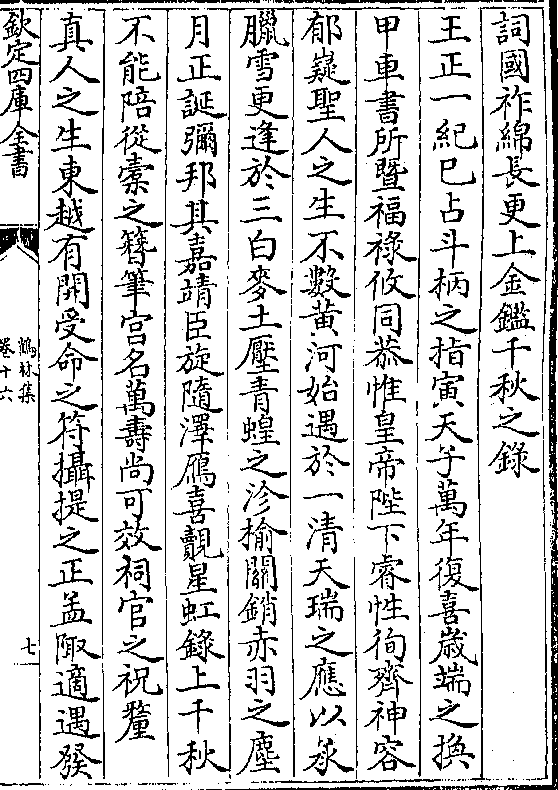 詞國祚綿長更上金鑑千秋之錄
王正一紀巳占斗柄之指寅天子萬年復喜嵗端之換
甲車書所暨福祿攸同恭惟皇帝陛下睿性徇齊神容
郁嶷聖人之生不數黃河始遇於一清天瑞之應以㳟
臘雪更逢於三白麥土壓青蝗之沴榆關銷赤羽之塵
月正誕彌邦其嘉靖臣旋隨澤鴈喜覿星虹錄上千秋
不能陪從槖之簪筆宫名萬壽尚可效祠官之祝釐
真人之生東越有開受命之符攝提之正孟陬適遇發
欽定四庫全書
鶴林集
卷十六
七